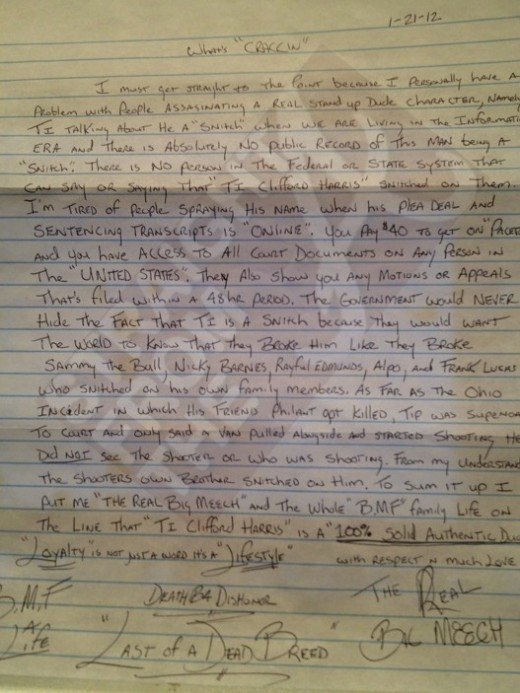 1-21-12
What's "CRACCIN"
I must get straight to the Point because I Personally have a
Problem with People ASSASINATING A REAL Stand up Dude CHARACTER, Namely
TI Talking About He A "Snitch" when WE ARE Living in the Informati
ERA and There is Absolutely NO public Record of This MAN being A
"Snitch". There is NO Person in The Federal or STATE System THAT
CAN SAY OR SAYING THAT "TI Clifford HARRIS" SNITCHED ON Them.
I'm TIRED of People SPRAYING HIS NAME when his PLEA DEAL AND
SENTENCING TRANSCRIPTS IS "ONLINE". YOU PAY $40 TO get ON "PACER
AND you have ACCESS TO All Court Documents ON ANY Person IN
The "UNITED STATES". They Also show you ANY Motions or APPEALS
That's filed within A 48hr PERIOD. The GOVERNMENT would NEVER
Hide The FACT THAT TI IS A SNITCH because They would WANT
The World To KNOW THAT They BROKE Him LIKE They BROKE
SAMMY The Bull, NICKY BARNES, RAYFUL EDMONDS, Alpo, and FRANK LUCAS
Who SNITCHED ON his own family members. AS FAR AS The Ohio
INCIDENT IN which His FRIEND PHILANT got KILLED, TIP was
To Court and only SAID A VAN Pulled Alongside and STARTED Shooting HE
Did NOT see The Shooter or Who was Shooting. From my
The Shooters own Brother SNITCHED ON Him. To Sum it up I
Put ME "THE REAL BIG MEECH" and The Whole "B.M.F" family Life on
The LINE THAT "TI Clifford HARRIS" IS A "100% Solid Authentic
"Loyalty" is not just a word it's a "Lifestyle" with respect n much Love
B.M.F DEATH B4 DISHONOR THE REAL
4 Life "LAST of A DEAD BREED" BIG MEECH